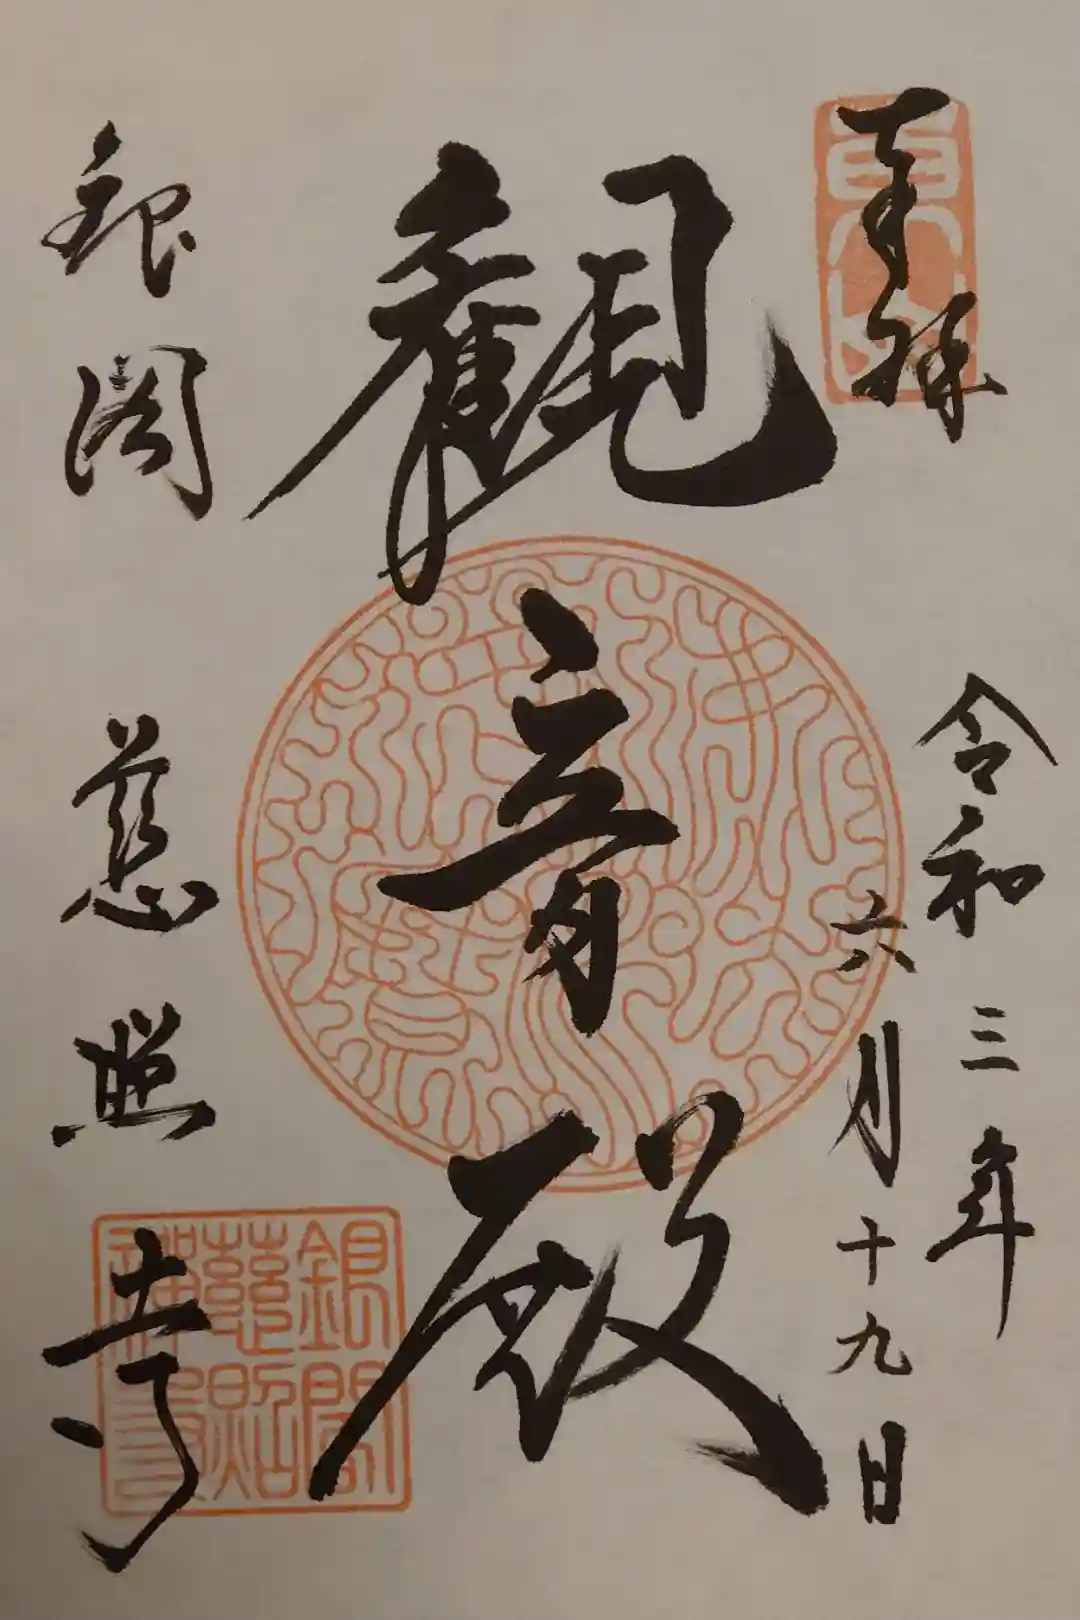 奉拝
令和三年
六月十九日
観音殿
銀閣
慈照寺
銀閣
慈照
禅寺